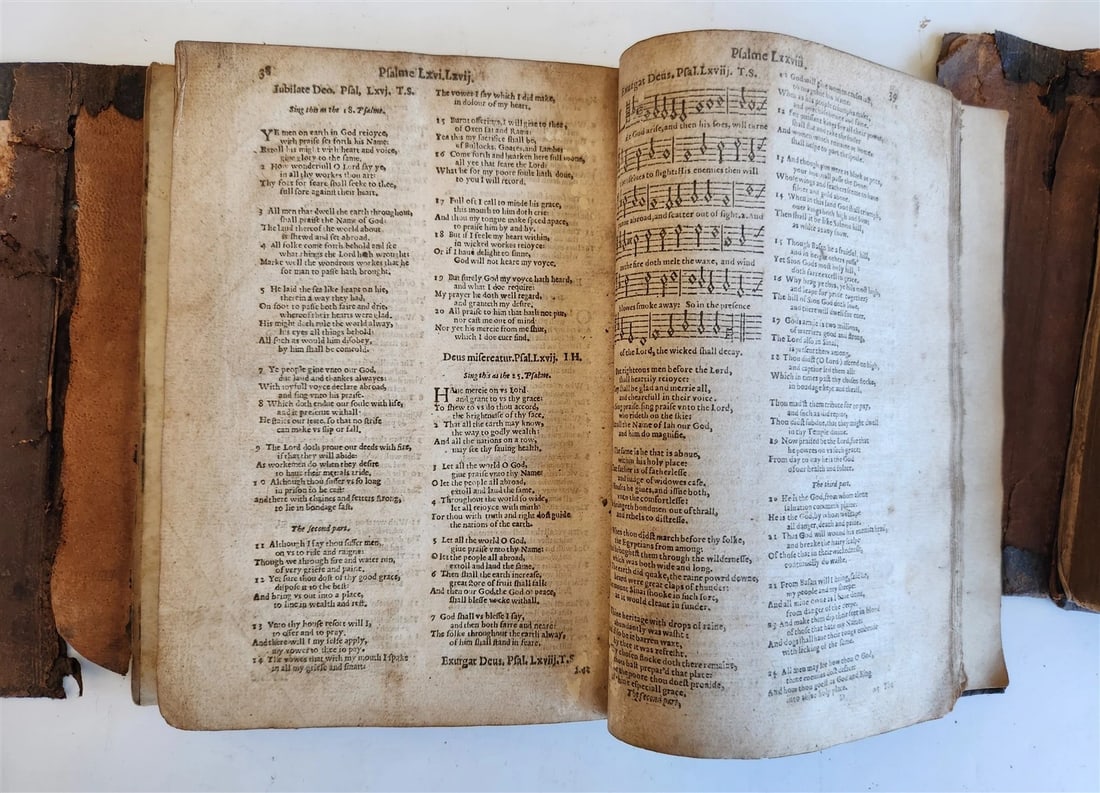 38
Psalme Lxvi.Lxvij.
Iubilate Deo. Psal, Lxvj. T.S.
Sing this as the 18. Psalme.
YE men on earth in God reioyce,
with praise set forth his Name:
Extoll his might with heart and voice,
giue glory to the same.
2 How wonderfull O Lord say ye,
in all thy workes thou art:
Thy foes for feare shall seeke to thee,
full sore against their heart.
3 All men that dwell the earth throughout,
shall praise the Name of God:
The laud thereof the world about
is shewed and set abroad.
4 All folke come forth behold and see
what things the Lord hath wrought
Marke well the wondrous workes that he
for man to passe hath brought.
5 He laid the sea like heaps on hie,
therein a way they had,
On foot to passe both faire and drie,
whereof their hearts were glad.
His might doth rule the world alway,
his eyes all things behold:
All such as would him disobey,
by him shall be controld.
7 Ye people giue vnto our God,
due laud and thankes alwayes:
With ioyfull voyce declare abroad,
and sing vnto his praise.
8 Which doth endue our soule with life,
and it preserue withall:
He staies our feete, so that no strife
can make vs slip or fall.
9 The Lord doth proue our deeds with fire,
if that they will abide:
As workemen do when they desire
to haue their mettals tride.
10 Although thou suffer vs so long
in prison to be cast:
and there with chaines and fetters strong,
to lie in bondage fast.
The second part.
11 Although I say thou suffer men,
on vs to ride and raigne:
Though we through fire and water run,
of very griefe and paine,
12 Yet sure thou dost of thy good grace,
dispose it to the best:
And bring vs out into a place,
to liue in wealth and rest.
13 Vnto thy house resort will I,
to offer and to pray,
And there will I my selfe apply,
my vowes to thee to pay.
14 The vowes that with my mouth I spake
in all my griefe and smart:
The vowes I say which I did make,
in dolour of my heart.
15 Burnt offerings, I will giue to thee,
of Oxen fat and Rams:
Yea this my sacrifice shall be,
of Bullocks, Goates, and Lambes
16 Come forth and hearken here full soone,
all yee that feare the Lord:
What he for my poore soule hath done,
to you I will record.
17 Full oft I call to minde his grace,
this mouth to him doth crie:
And thou my tongue make speed apace,
to praise him by and by.
18 But if I feele my heart within,
in wicked workes reioyce:
Or if I haue delight to sinne,
God will not heare my voyce.
19 But surely God my voyce hath heard,
and what I doe require:
My prayer he doth well regard,
and granteth my desire,
20 All praise to him that hath not put,
nor cast me out of mind
Nor yet his mercie from me shut,
which I doe euer find.
Deus misereatur.Psal.Lxvij. I H.
Sing this as the 25. Psalme.
HAue mercie on vs Lord
and grant to vs thy grace:
To shew to vs do thou accord,
the brightnesse of thy face,
2 That all the earth may know,
the way to godly wealth:
And all the nations on a row,
may see thy sauing health.
3 Let all the world O God,
giue praise vnto thy Name:
O let the people all abroad,
extoll and laud the same,
4 Throughout the world so wide,
let all reioyce with mirth:
For thou with truth and right dost guide
the nations of the earth.
5 Let all the world O God,
giue praise vnto thy Name:
O let the people all abroad,
extoll and laud the same,
6 Then shall the earth increase,
great store of fruit shall fall:
And then our God, the God of peace,
shall blesse vs eke withall.
7 God shall vs blesse I say,
and then both farre and neare:
The folke throughout the earth alway,
of him shall stand in feare.
Exurgat Deus, Psal. Lxviij.T.S
Psalme Lxxviii.
39
Exurgat Deus, Psal. Lxviij. T.S.
God arise, and then his foes, will turne
themselues to flight: His enemies then will
runne abroad, and scatter out of sight, 2. And
as the fire doth melt the waxe, and wind
blowes smoke away: So in the presence
of the Lord, the wicked shall decay.
But righteous men before the Lord,
shall heartily reioyce:
be glad and merrie all,
and chearefull in their voice.
Sing praise, sing praise vnto the Lord,
who rideth on the skie:
the Name of Iah our God,
and him do magnifie.
The same is he that is aboue,
within his holy place:
father is of fatherlesse
and iudge of widowes case,
he giues, and issue both,
vnto the comfortlesse:
bondmen out of thrall,
and rebels to distresse.
When thou didst march before thy folke,
the Egyptians from among:
them through the wildernesse,
which was both wide and long.
The earth did quake, the raine powrd downe,
heard were great claps of thunder:
Sinai shooke in such sort,
as it would cleaue in sunder.
heritage with drops of raine,
abundantly was washt:
be it barren waxe,
it was refresht.
chosen flocke doth there remaine,
prepar'd that place:
the poore thou doest prouide,
especiall grace.
The second part,
12
13 And though
14 When in this land
15 Though Basan be a fruitfull hill,
16
17 Gods armie is two millions,
of warriers good and strong,
The Lord also in Sinai,
is present them among,
18 Thou didst (O Lord) ascend on high,
and captiue led them all:
Which in times past thy chosen flocke,
in bondage kept and thrall,
Thou madst them tribute for to pay,
Thou didst subdue, that they might dwell
in thy Temple diuine.
19 Now praised be the Lord, for that
he powres on vs such grace:
From day to day he is the God
of our health and solace.
The third part.
20 He is the God, from whom alone
saluation commeth plaine:
He is the God, by whom we scape
all danger, death and paine.
21
Of those that in their wickednesse,
continually do waite.
22 From Basan will I bring, said he,
my people and my sheepe:
from danger of the deepe.
23 And make them dip their feet in blood
of those that hate my Name:
And dogs shall haue their tongs
with licking of the same.
24 All men may see how thou O God,
thine enemies dost deface:
And how thou goest as God and King
into thine holy place.